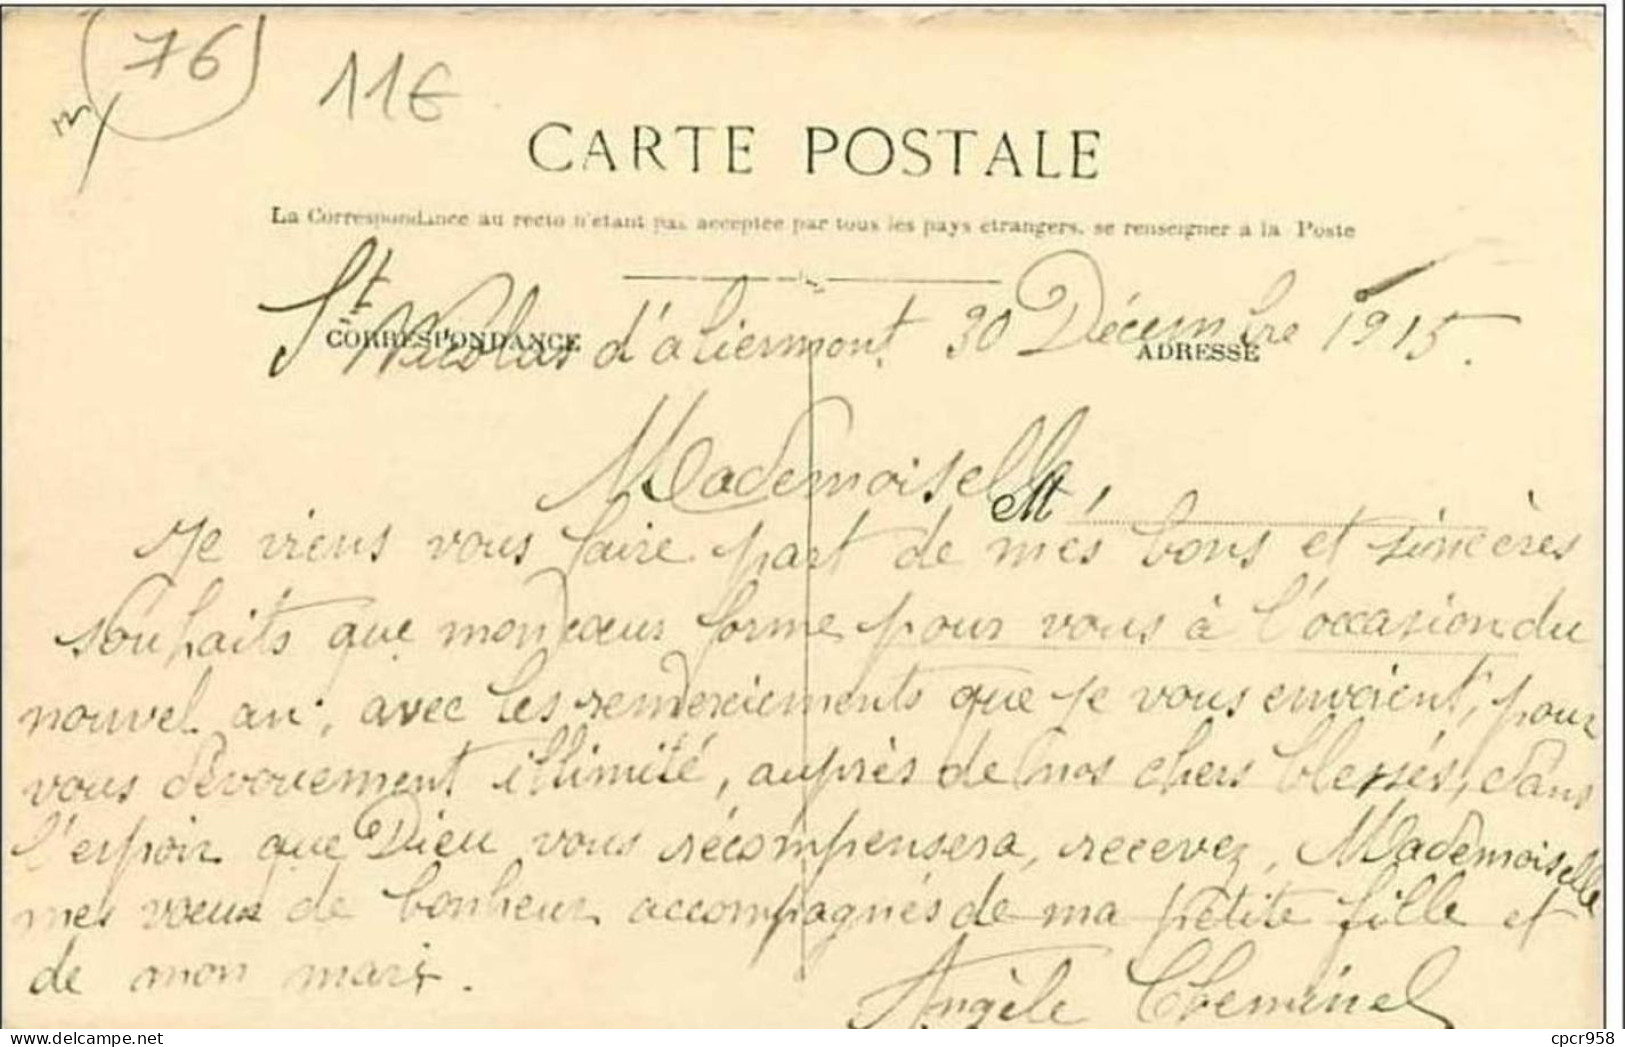 (76)
11€
CARTE POSTALE
La Correspondance au recto n'étant pas acceptée par tous les pays étrangers, se renseigner à la Poste
CORRESPONDANCE
ADRESSE
St Nicolas d'aliermont 30 Décembre 1915.
Mademoiselle
M
Je viens vous faire part de mes bons et sincères
souhaits que mon cœur forme pour vous à l'occasion du
nouvel an, avec les remerciements que je vous envoient, pour
vous dévouement illimité, auprès de nos chers blessés, dans
l'espoir que Dieu vous récompensera, recevez, Mademoiselle
mes vœux de bonheur accompagnés de ma petite fille et
de mon mari.
Angèle Cheminel
delcampe.net
cpcr958